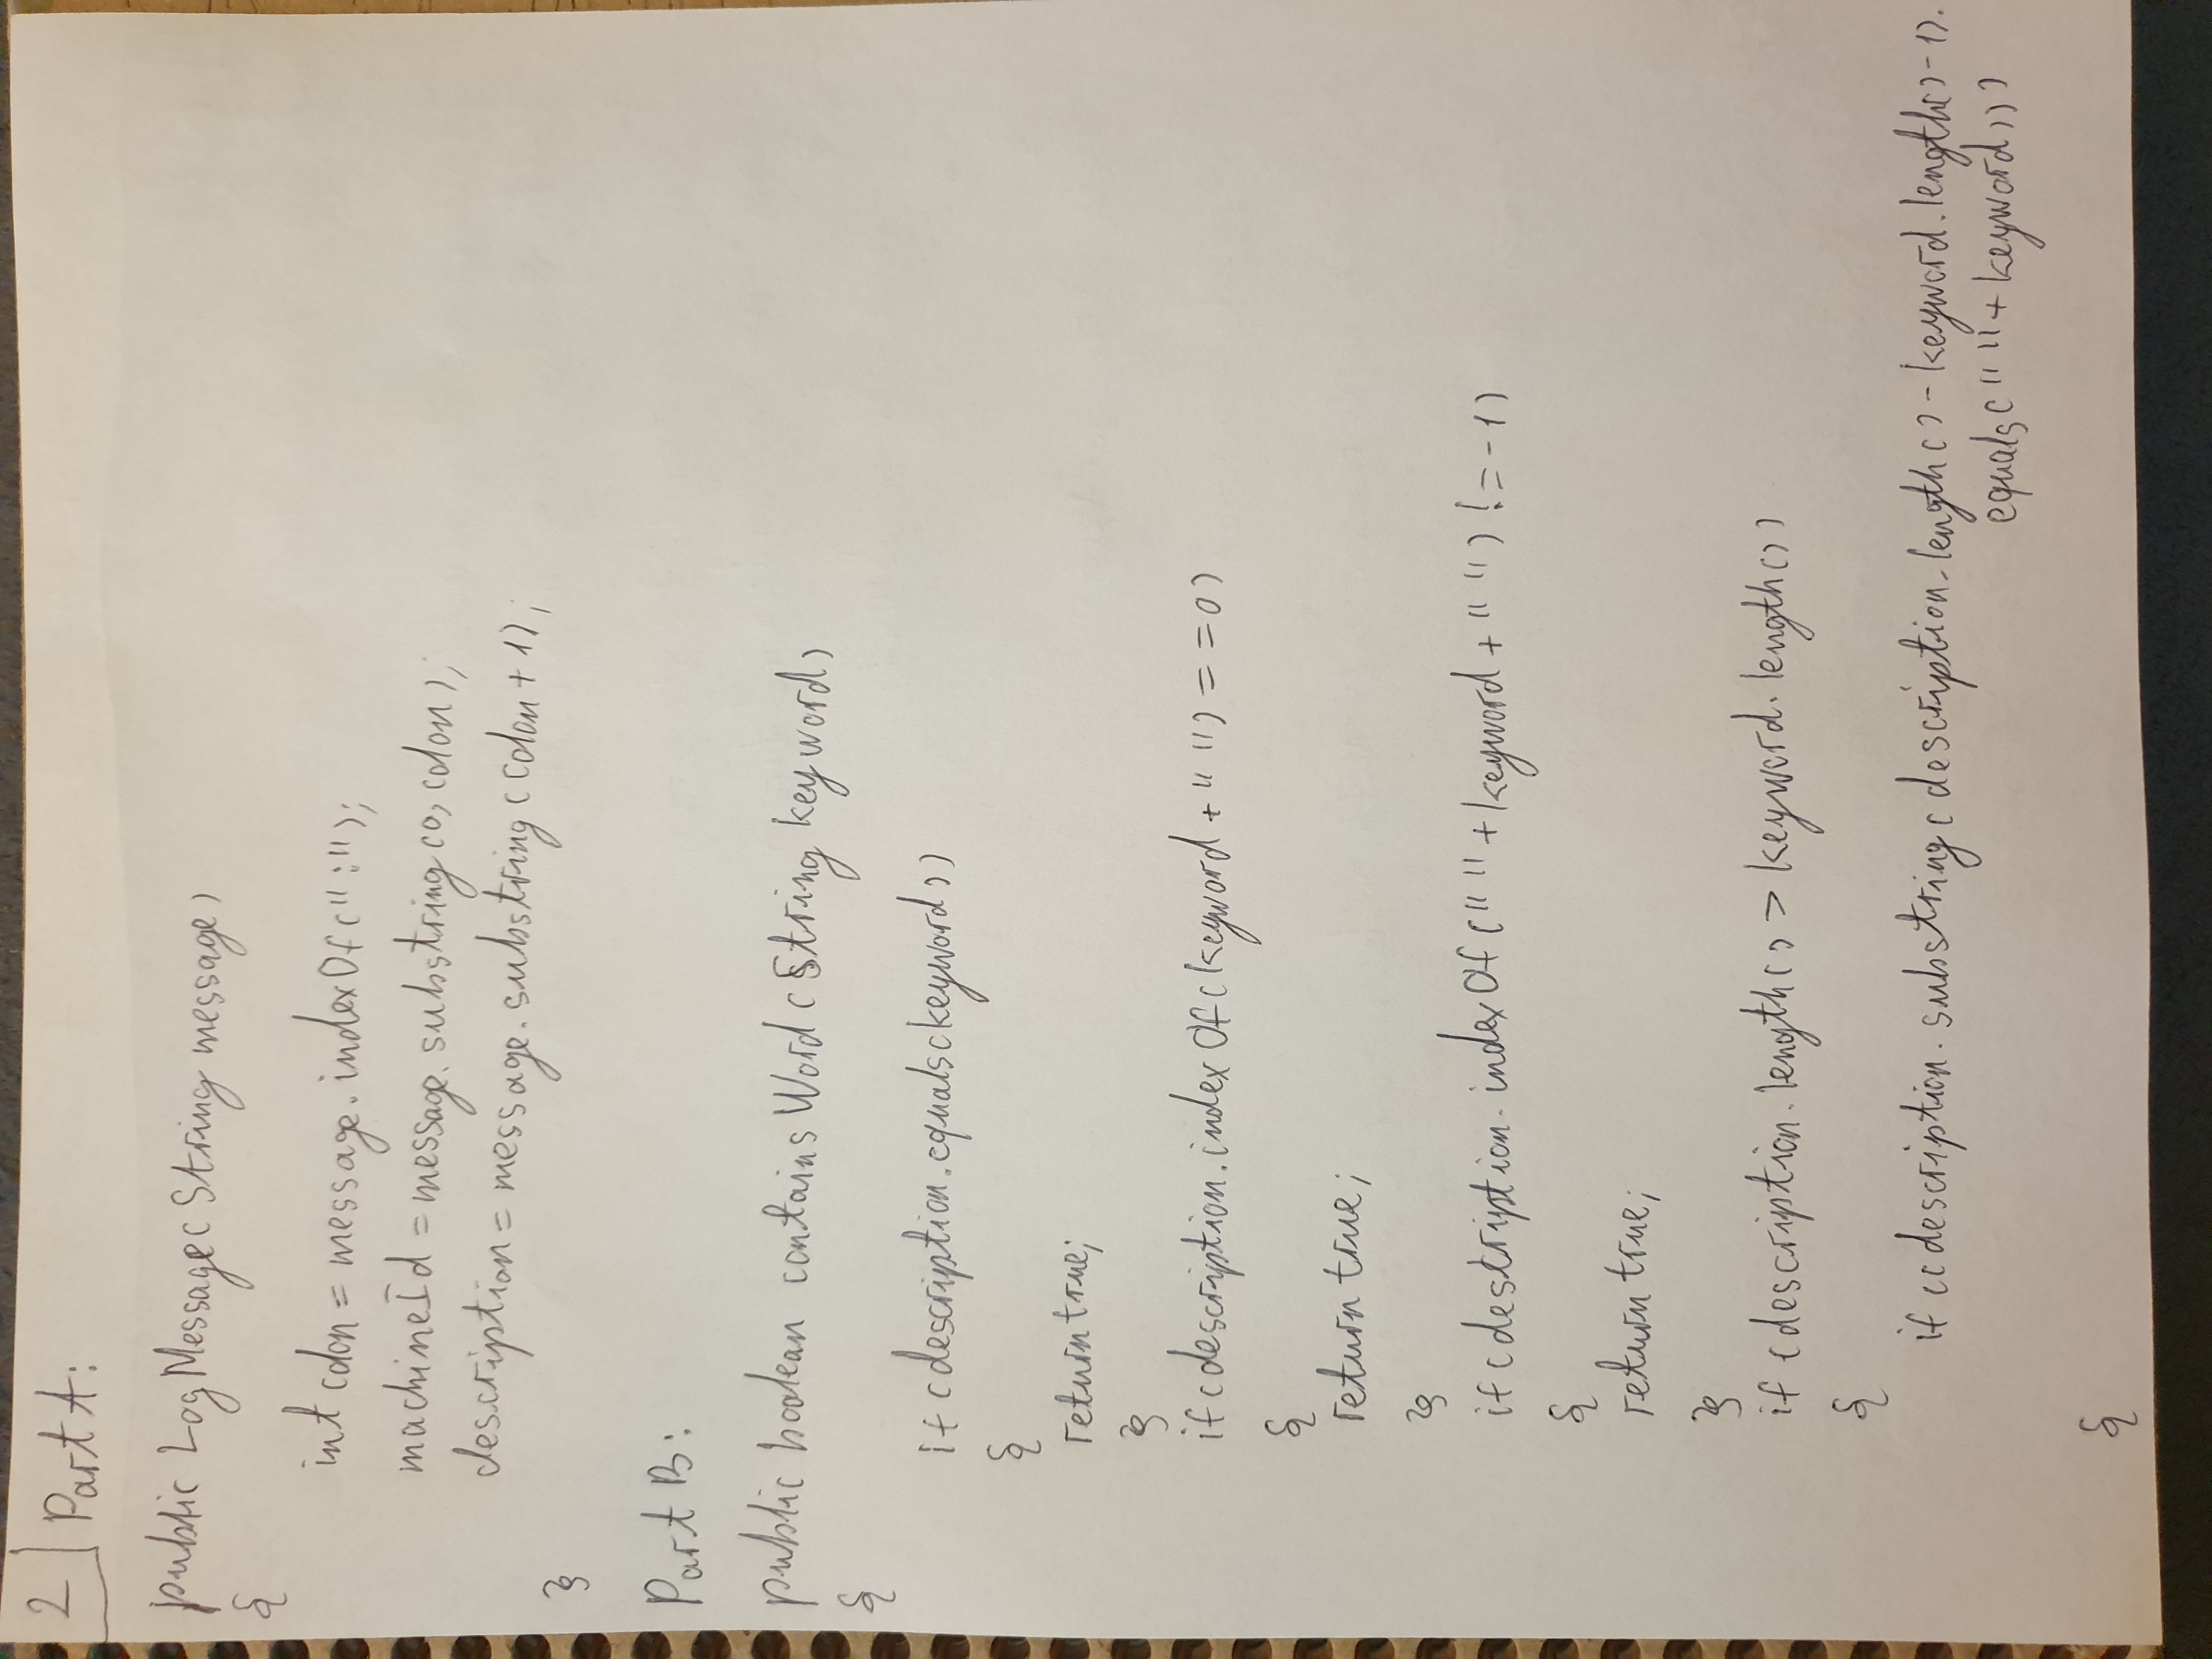 2 Part A:
public LogMessage(String message)
{
int colon = message.indexOf(":");
machineId = message.substring(0, colon);
description = message.substring(colon + 1);
}
Part B:
public boolean containsWord(String keyword)
{
if(description.equals(keyword))
{
return true;
}
if(description.indexOf(keyword + " ") == 0)
{
return true;
}
if(destription.indexOf(" " + keyword + " ") != -1)
{
return true;
}
if(description.length() > keyword.length())
{
if((description.substring(description.length() - keyword.length() - 1).
equals(" " + keyword)))
{